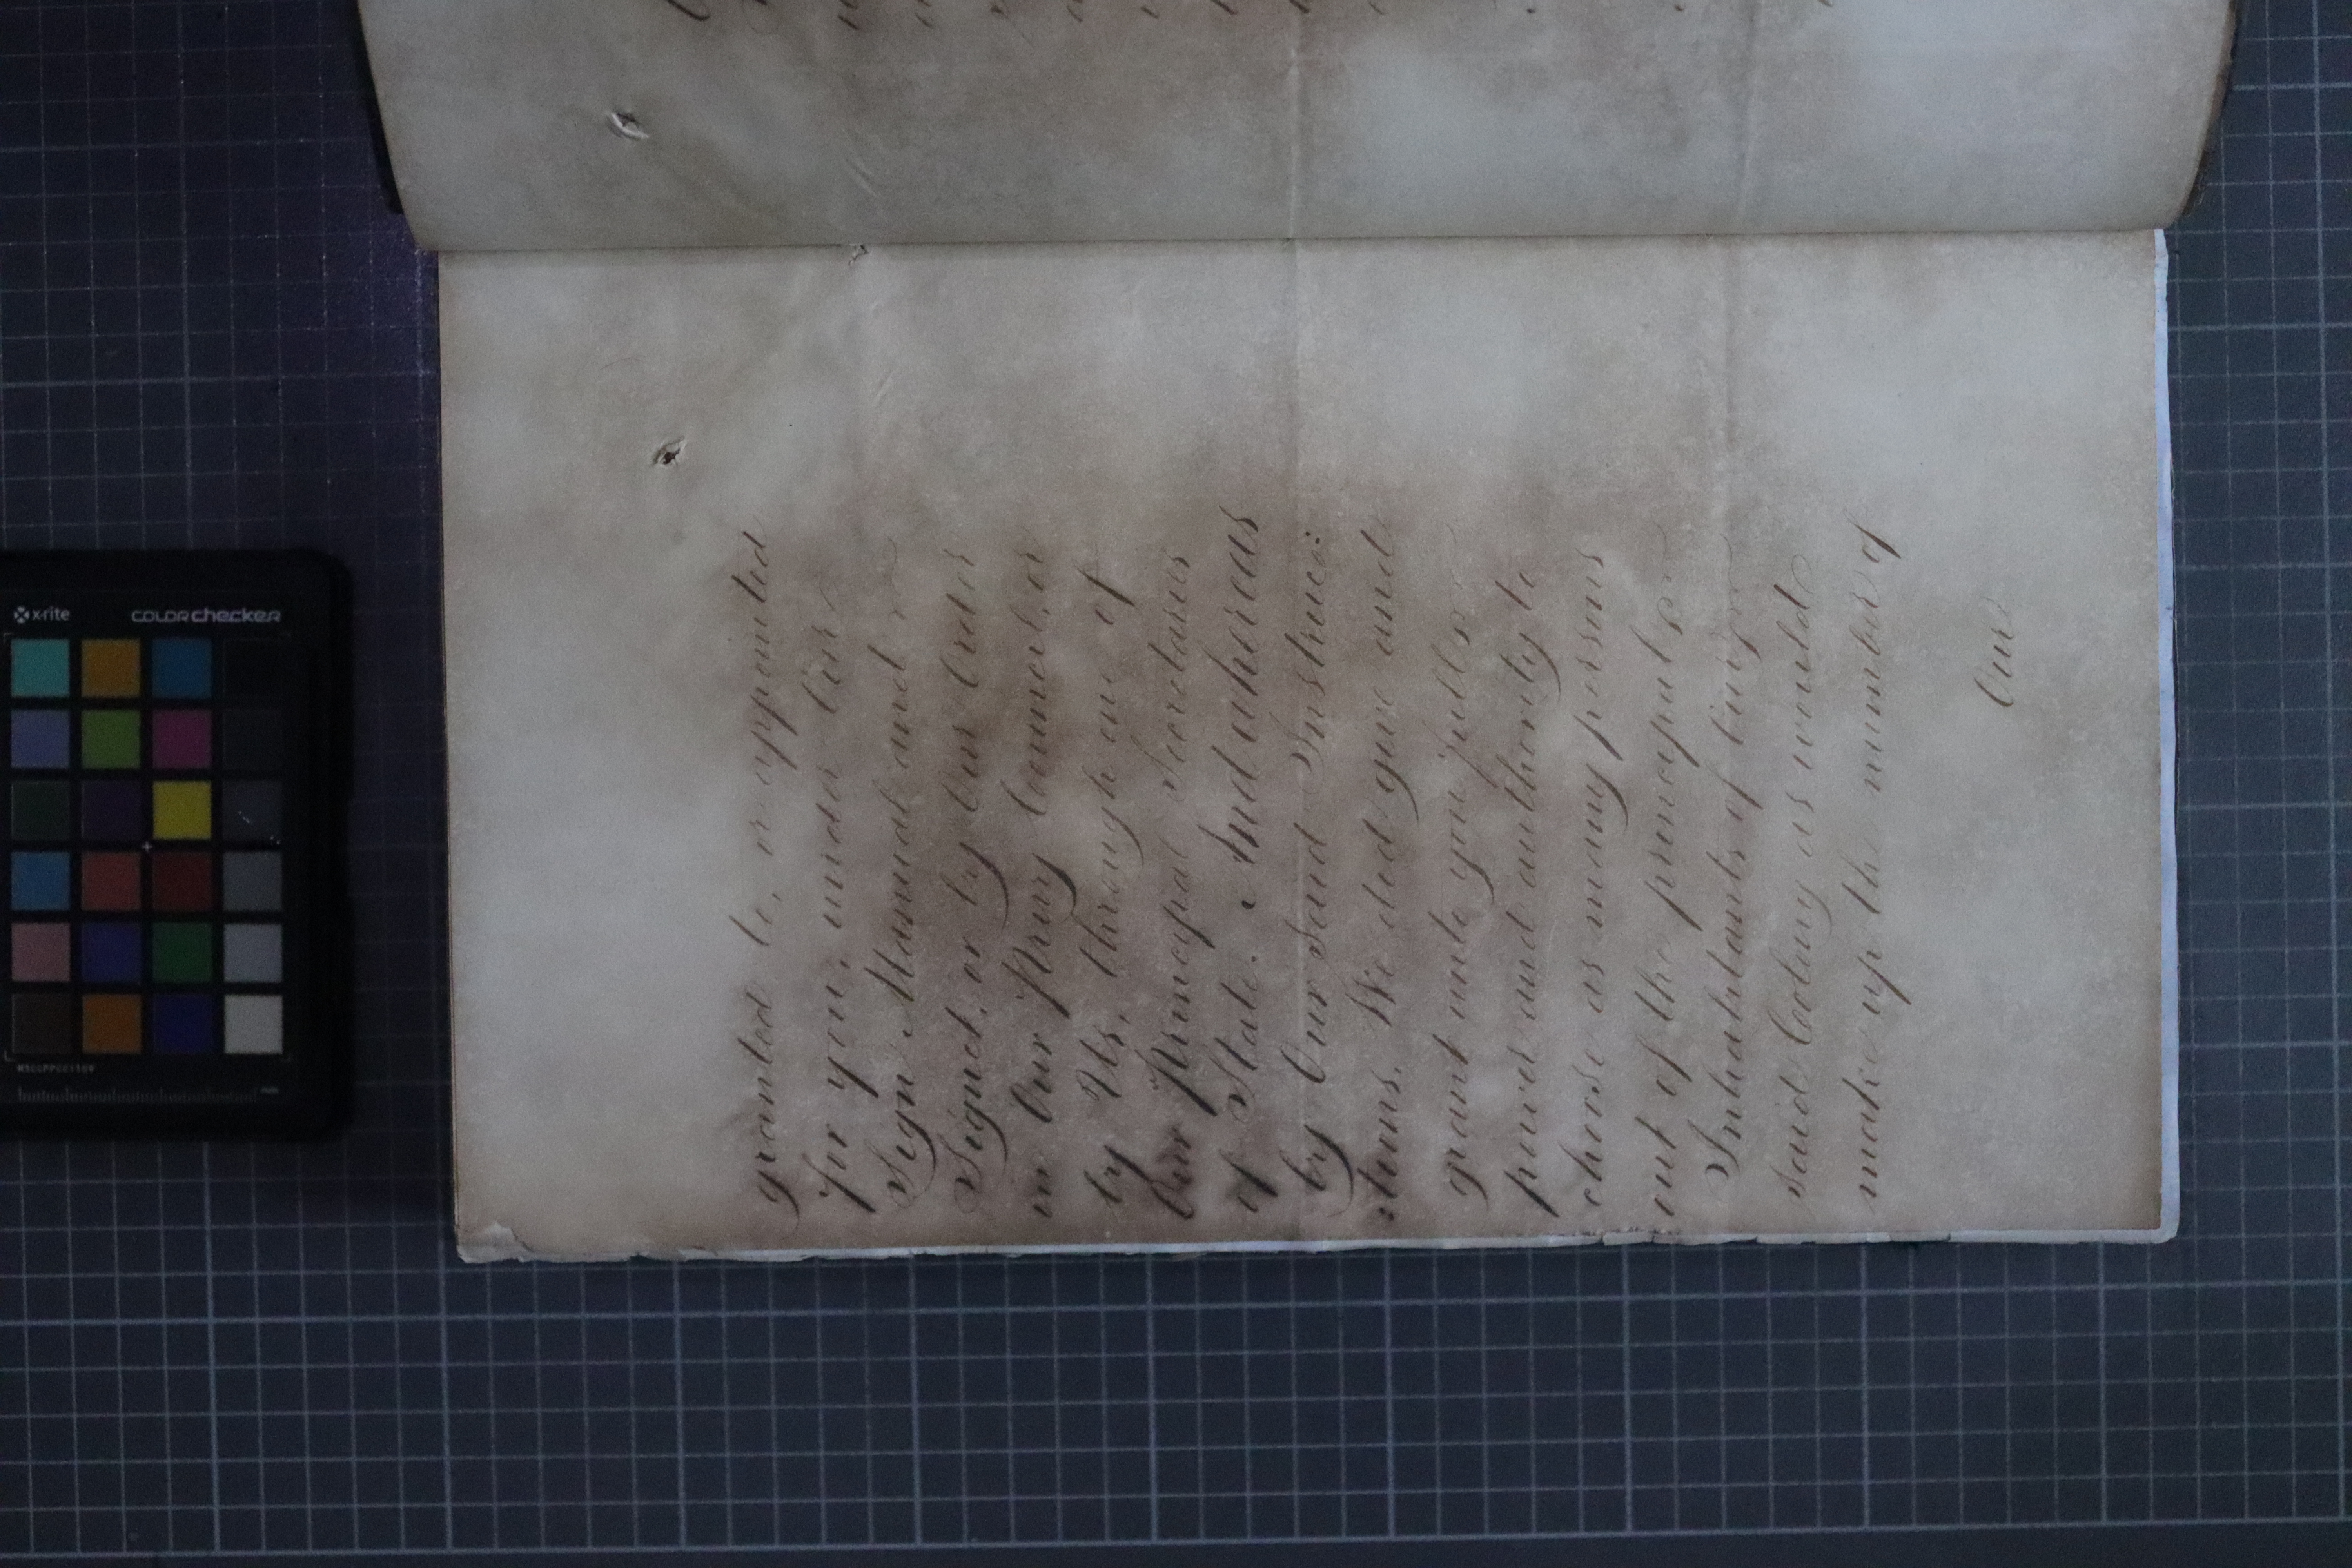 granted to, or appointed
for you, under Our
Sign Manual and
Signet, or by Our Order
in Our Privy Council, or
by Us, through one of
Our Principal Secretaries
of State. And whereas
by Our said Instruc:
:tions, We did give and
grant unto you full
power and authority to
choose as many persons
out of the principal
Inhabitants of Our
said Colony as would
make up the number of
Our
x-rite
COLORchecker
MSCCPPCC1109